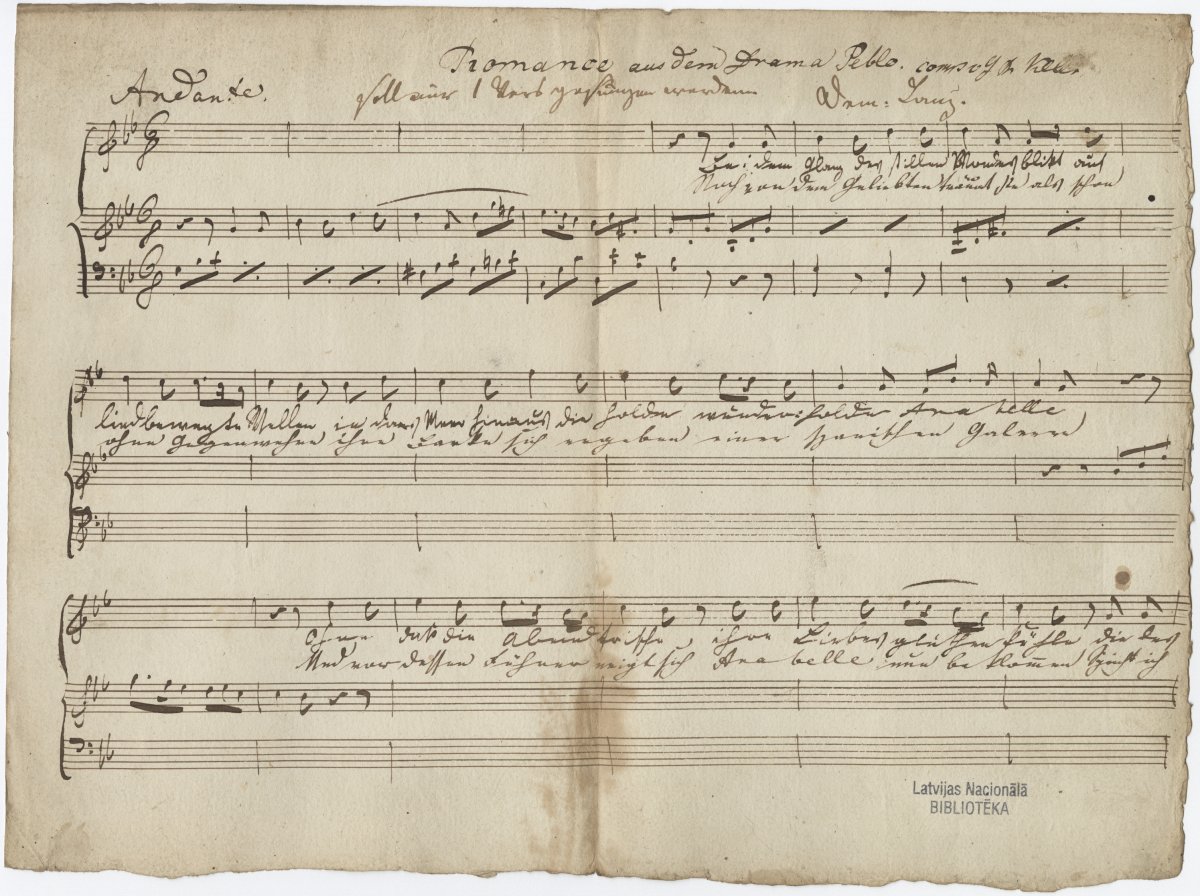 Romance aus dem Drama Peblo. comp v
Andante. soll nur 1 Vers gesungen werden Dem: Lanz.
Bei dem Glanz des stillen Mondes blikt auf
Nach von dem Geliebten träumt sie als schon
lindbewegte Wellen in das Meer hinaus die holde wunderholde Ana belle
ohne Gegenwehre ihre Barke sich ergeben einer spanischen Galeere
Ohne daß die Abendfrische, ihre Liebes gluthen kühle die des
Und vor dessen Führer neigt sich Ana belle nun beklommen Spricht ich
Latvijas Nacionālā
BIBLIOTĒKA